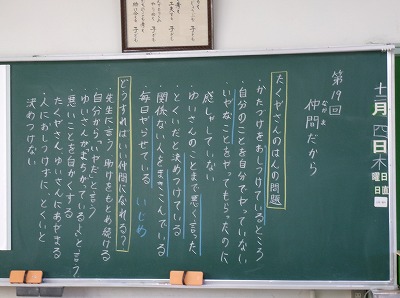 十一月四日木曜日
日直
第19回
仲間だから
なかま
たくやさんのはんの問題
・かたづけをおしつけているところ
・自分のことを自分でやっていない
・いやなことをやってもらったのに
感しゃしていない
・ゆいさんのことまで悪く言った
・とくいだと決めつけている
・関係ない人をまきこんでいる
・毎日やらせている
いじめ
どうすればいい仲間になれる?
・先生に言う 助けをもとめ続ける
・自分から「イヤだ」と言う
・ゆいさんが「まちがっているよ」と言う
・悪いことを自かくする
・たくやさん ゆいさんにあやまる
・人におしつけずに、とくいと
決めつけない